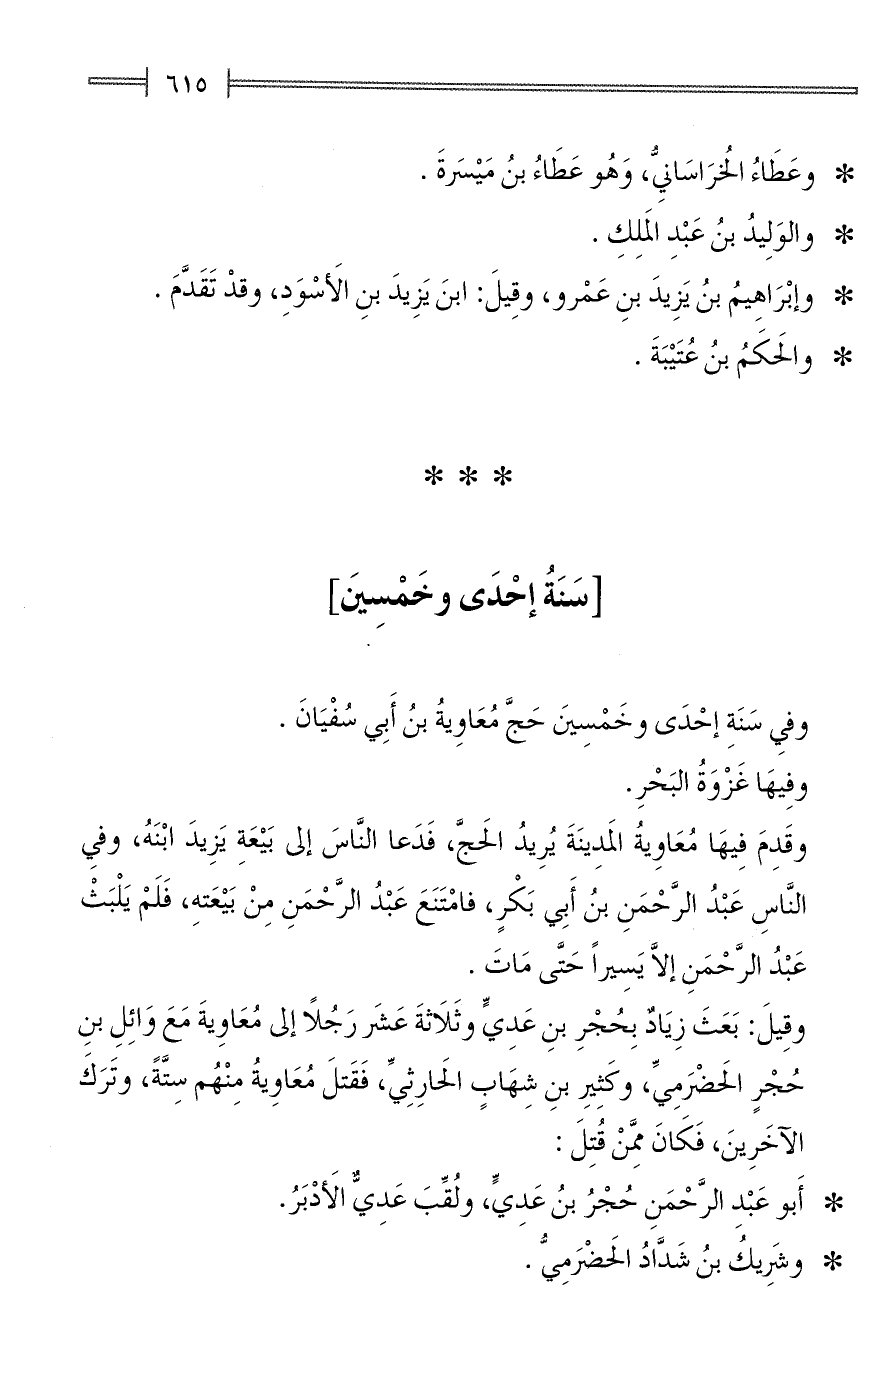 ٦١٥
* وعَطَاءُ الخُرَاسَانيُّ، وَهُو عَطَاءُ بنُ مَيْسَرةَ .
* والوَلِيدُ بنُ عَبْدِ المَلِكِ .
* وإبْرَاهِيمُ بنُ يَزِيدَ بنِ عَمْرو، وقِيلَ: ابنَ يَزِيدَ بنِ الأَسْوَدِ، وقدْ تَقَدَّمَ .
* والحَكَمُ بنُ عُتَيْبَةَ .
* * *
[سَنَةُ إحْدَى وخَمْسِينَ]
وفي سَنَةِ إحْدَى وخَمْسِينَ حَجَّ مُعَاوِيةُ بنُ أَبِي سُفْيَانَ .
وفِيهَا غَزْوَةُ البَحْرِ.
وقَدِمَ فِيهَا مُعَاوِيةُ المَدِينَةَ يُرِيدُ الحَجَّ، فَدَعا النَّاسَ إلى بَيْعَةِ يَزِيدَ ابْنَهُ، وفي
النَّاسِ عَبْدُ الرَّحْمَنِ بنُ أَبِي بَكْرٍ، فامْتَنَعَ عَبْدُ الرَّحْمَنِ مِنْ بَيْعَتهِ، فَلَمْ يَلْبَثْ
عَبْدُ الرَّحْمَنِ إلاَّ يَسِيراً حَتَّى مَاتَ .
وقِيلَ: بَعَثَ زِيَادٌ بِحُجْرِ بنِ عَدِيٍّ وثَلَاثةَ عَشَر رَجُلًا إلى مُعَاوِيةَ مَعَ وَائِلِ بنِ
حُجْرٍ الحَضْرَمِيِّ، وكَثِيرِ بنِ شِهَابٍ الحَارِثِيِّ، فَقَتلَ مُعَاوِيةُ مِنْهُم سِتَّةً، وتَرَكَ
الآخَرِينَ، فَكَانَ مِمَّنْ قُتِلَ :
* أَبو عَبْدِ الرَّحْمَنِ حُجْرُ بنُ عَدِيٍّ، ولُقِّبَ عَدِيٌّ الأَدْبَرُ.
* وشَرِيكُ بنُ شَدَّادُ الحَضْرَمِيُّ .